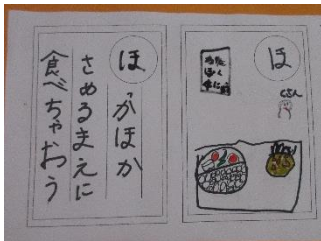 ほ
っかほか
さめるまえに
食べちゃおう
ほ